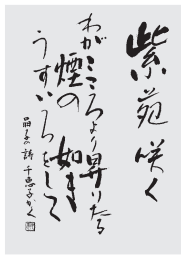 紫苑咲く
わがこころより昇りたる
煙の如き
うすいろをして
晶子の詩 千恵子かく